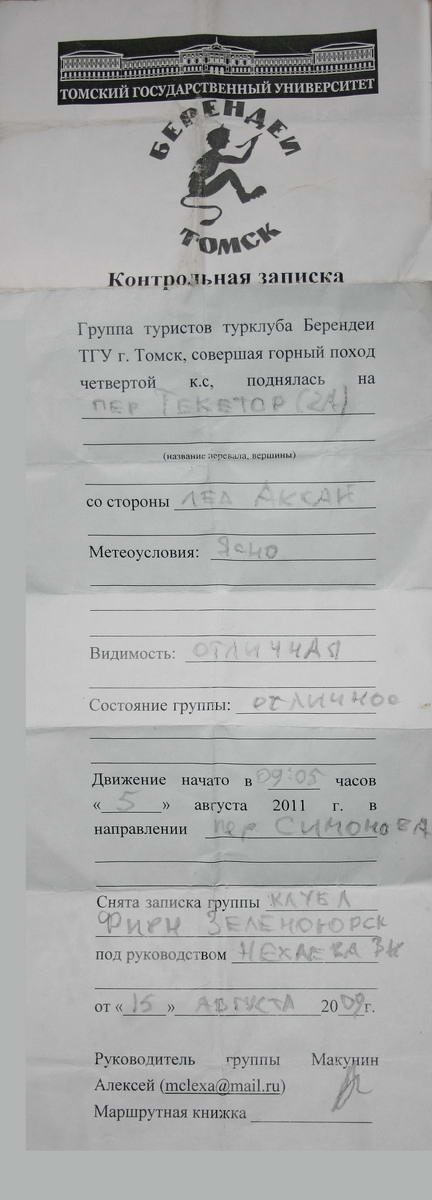 ТОМСКИЙ ГОСУДАРСТВЕННЫЙ УНИВЕРСИТЕТ
БЕРЕНДЕИ
ТОМСК
Контрольная записка
Группа туристов турклуба Берендеи
ТГУ г. Томск, совершая горный поход
четвертой к.с, поднялась на
пер ТЕКЕТОР (2А)
(название перевала, вершины)
со стороны ЛЕД АККАН
Метеоусловия: Ясно
Видимость: ОТЛИЧНАЯ
Состояние группы: ОТЛИЧНОЕ
Движение начато в 09:05 часов
« 5 » августа 2011 г. в
направлении пер СИМОНОВА
Снята записка группы КЛУБА
ЗЕЛЕНОГОРСК
под руководством НЕХАЕВА
от « 15 » АВГУСТА 2009г.
Руководитель группы Макунин
Алексей (mclexa@mail.ru)
Маршрутная книжка